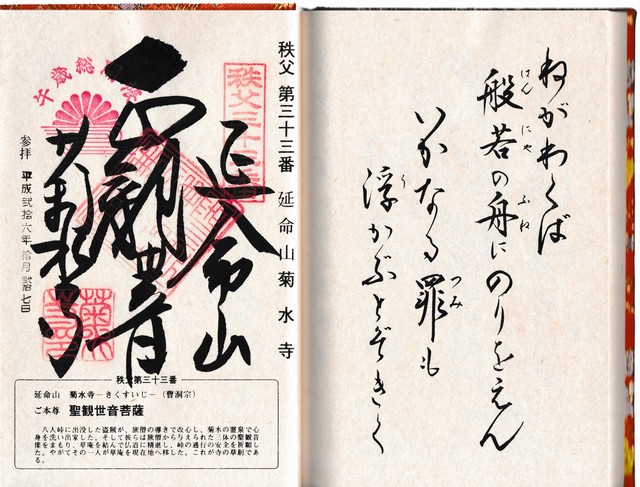 ねがわくば
般若の舟にのりをえん
いかなる罪も
浮かぶとぞきく
はんにや
ふね
つみ
う
秩父 第三十三番 延命山菊水寺
秩父三十三
延命山
聖観世音
菊水寺
千歳総
参拝 平成弐拾六年拾月弐拾七日
秩父第三十三番
延命山 菊水寺―きくすいじ―(曹洞宗)
ご本尊 聖観世音菩薩
八人峠に出没した盗賊が、旅僧の導きで改心し、菊水の霊泉で心
身を洗い出家した。そして彼らは旅僧から与えられた三体の聖観音
像をまもり、草庵を結んで仏道に精進し、峠の通行の安全を祈願し
た。やがてその一人が草庵を現在地へ移した。これが寺の草創であ
る。